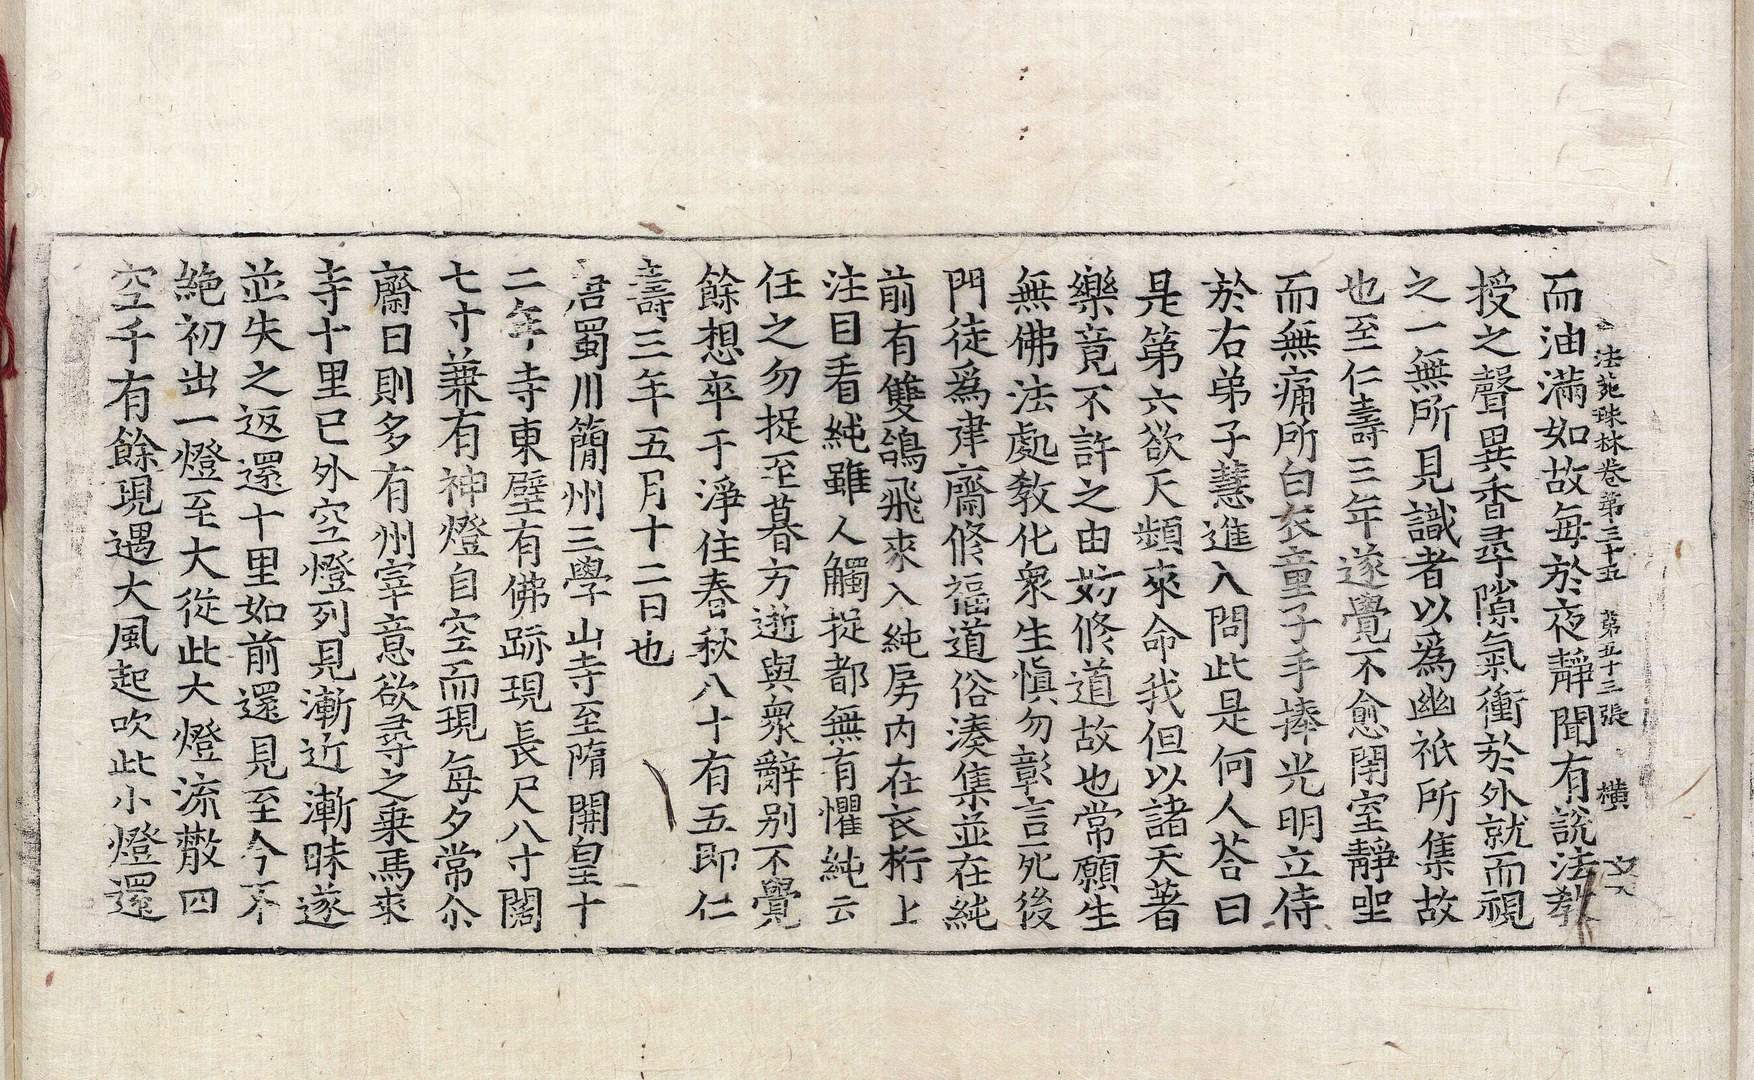 法苑珠林卷第三十五 第五十三張 橫
而油滿如故每於夜靜聞有說法教
授之聲異香尋隙氣衝於外就而視
之一無所見識者以爲幽祇所集故
也至仁壽三年遂覺不愈閉室靜坐
而無痛所白衣童子手捧光明立侍
於右弟子慧進入問此是何人荅曰
是第六欲天頻來命我但以諸天著
樂竟不許之由妨修道故也常願生
無佛法處教化衆生愼勿彰言死後
門徒爲建齋修福道俗湊集並在純
前有雙鴿飛來入純房內在衣桁上
注目看純雖人觸捉都無有懼純云
任之勿捉至暮方逝與衆辭別不覺
餘想卒于淨住春秋八十有五即仁
壽三年五月十二日也
君蜀川簡州三學山寺至隋開皇十
二年寺東壁有佛跡現長尺八寸闊
七寸兼有神燈自空而現每夕常尒
齋日則多有州宰意欲尋之乗馬來
寺十里已外空燈列見漸近漸昧遂
並失之返還十里如前還見至今不
絕初出一燈至大從此大燈流散四
空千有餘現遇大風起吹此小燈還